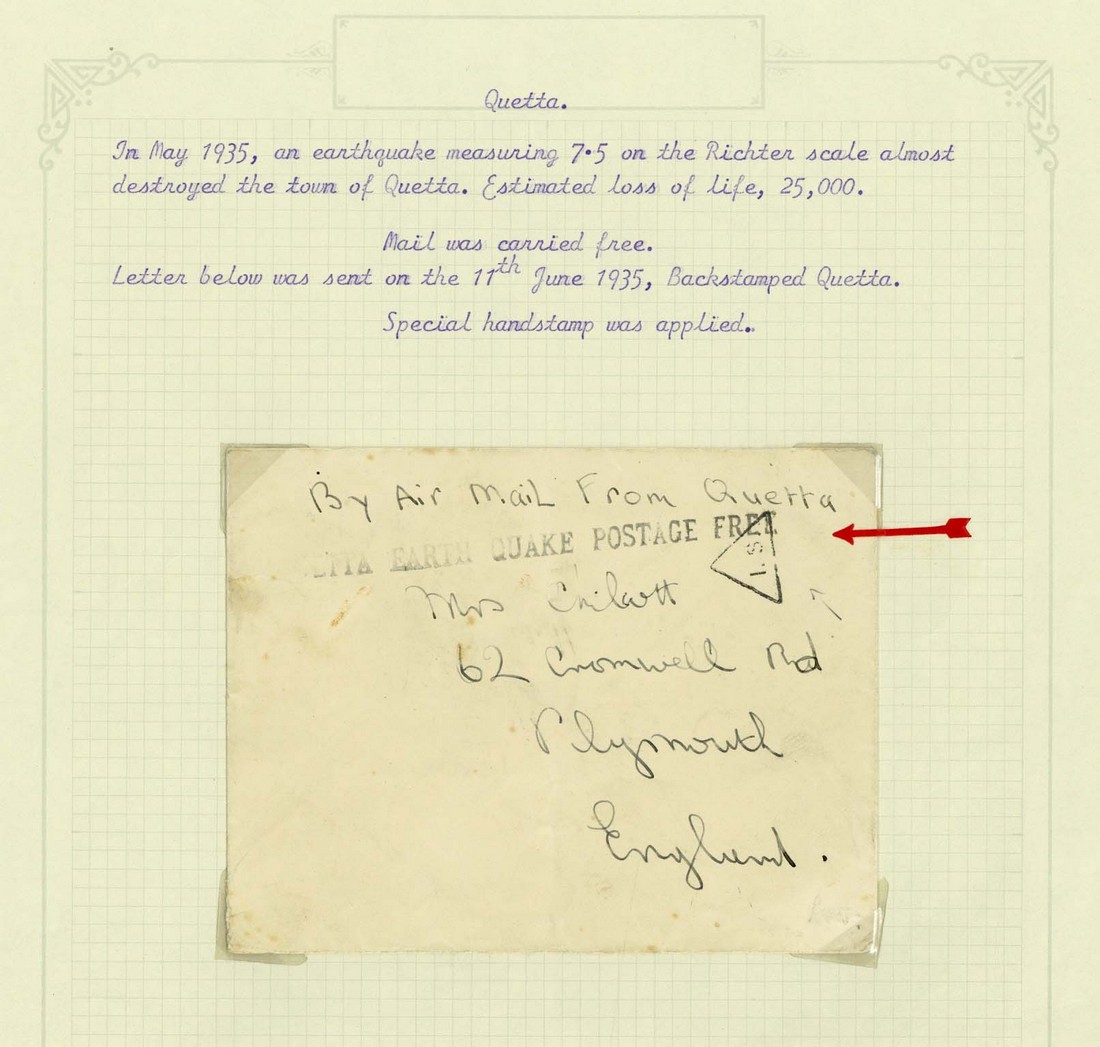 Quetta.
In May 1935, an earthquake measuring 7·5 on the Richter scale almost
destroyed the town of Quetta. Estimated loss of life, 25,000.
Mail was carried free.
Letter below was sent on the 11th June 1935, Backstamped Quetta.
Special handstamp was applied.
By Air Mail From Quetta
ETTA EARTH QUAKE POSTAGE FREE
Mrs
62 Cromwell Rd
Plymouth
England.